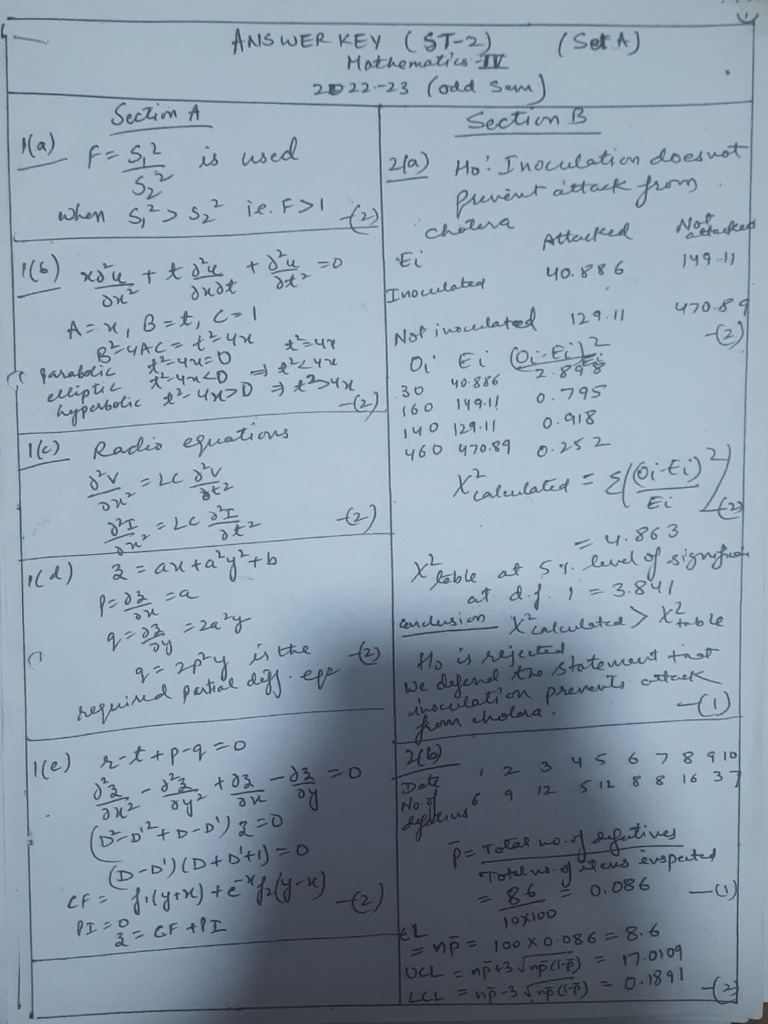 ANSWER KEY (ST-2) (Set A)
Mathematics-IV
2022-23 (odd Sem)
Section A
1(a) F = S₁²/S₂² is used
when S₁² > S₂² i.e. F>1 -(2)
1(b) x∂²u/∂x² + t ∂²u/∂x∂t + ∂²u/∂t² = 0
A = x, B = t, C = 1
B²-4AC = t²-4x
parabolic t²-4x=0 t²=4x
elliptic t²-4x<0 ⇒ t²<4x
hyperbolic t²-4x>0 ⇒ t²>4x
-(2)
1(c) Radio equations
∂²V/∂x² = LC ∂²V/∂t²
∂²I/∂x² = LC ∂²I/∂t² -(2)
1(d) z = ax+a²y²+b
p = ∂z/∂x = a
q = ∂z/∂y = 2a²y
q = 2p²y is the -(2)
required partial diff. eqn
1(e) r-t+p-q=0
∂²z/∂x² - ∂²z/∂y² + ∂z/∂x - ∂z/∂y = 0
(D²-D'²+D-D') z=0
(D-D')(D+D'+1)=0
CF = f₁(y+x)+e⁻ˣf₂(y-x) -(2)
PI=0
z = CF+PI
Section B
2(a) H₀: Inoculation does not
prevent attack from
cholera
Ei Attacked Not attacked
Inoculated 40.886 149.11
Not inoculated 129.11 470.89
-(2)
Oi Ei (Oi-Ei)²/Ei
30 40.886 2.898
160 149.11 0.795
140 129.11 0.918
460 470.89 0.252
X²calculated = Σ((Oi-Ei)²/Ei) -(2)
= 4.863
X²table at 5% level of signifi
at d.f. 1 = 3.841
conclusion X²calculated > X²table
H₀ is rejected
We defend the statement that
inoculation prevents attack
from cholera. -(1)
2(b)
Date 1 2 3 4 5 6 7 8 9 10
No. of defectives 6 9 12 5 12 8 8 16 3 7
p̄ = Total no. of defectives/Total no. of items inspected
= 86/10×100 = 0.086 -(1)
CL
= np̄ = 100×0.086 = 8.6
UCL = np̄+3√np̄(1-p̄) = 17.0109
LCL = np̄-3√np̄(1-p̄) = 0.1891 -(2)